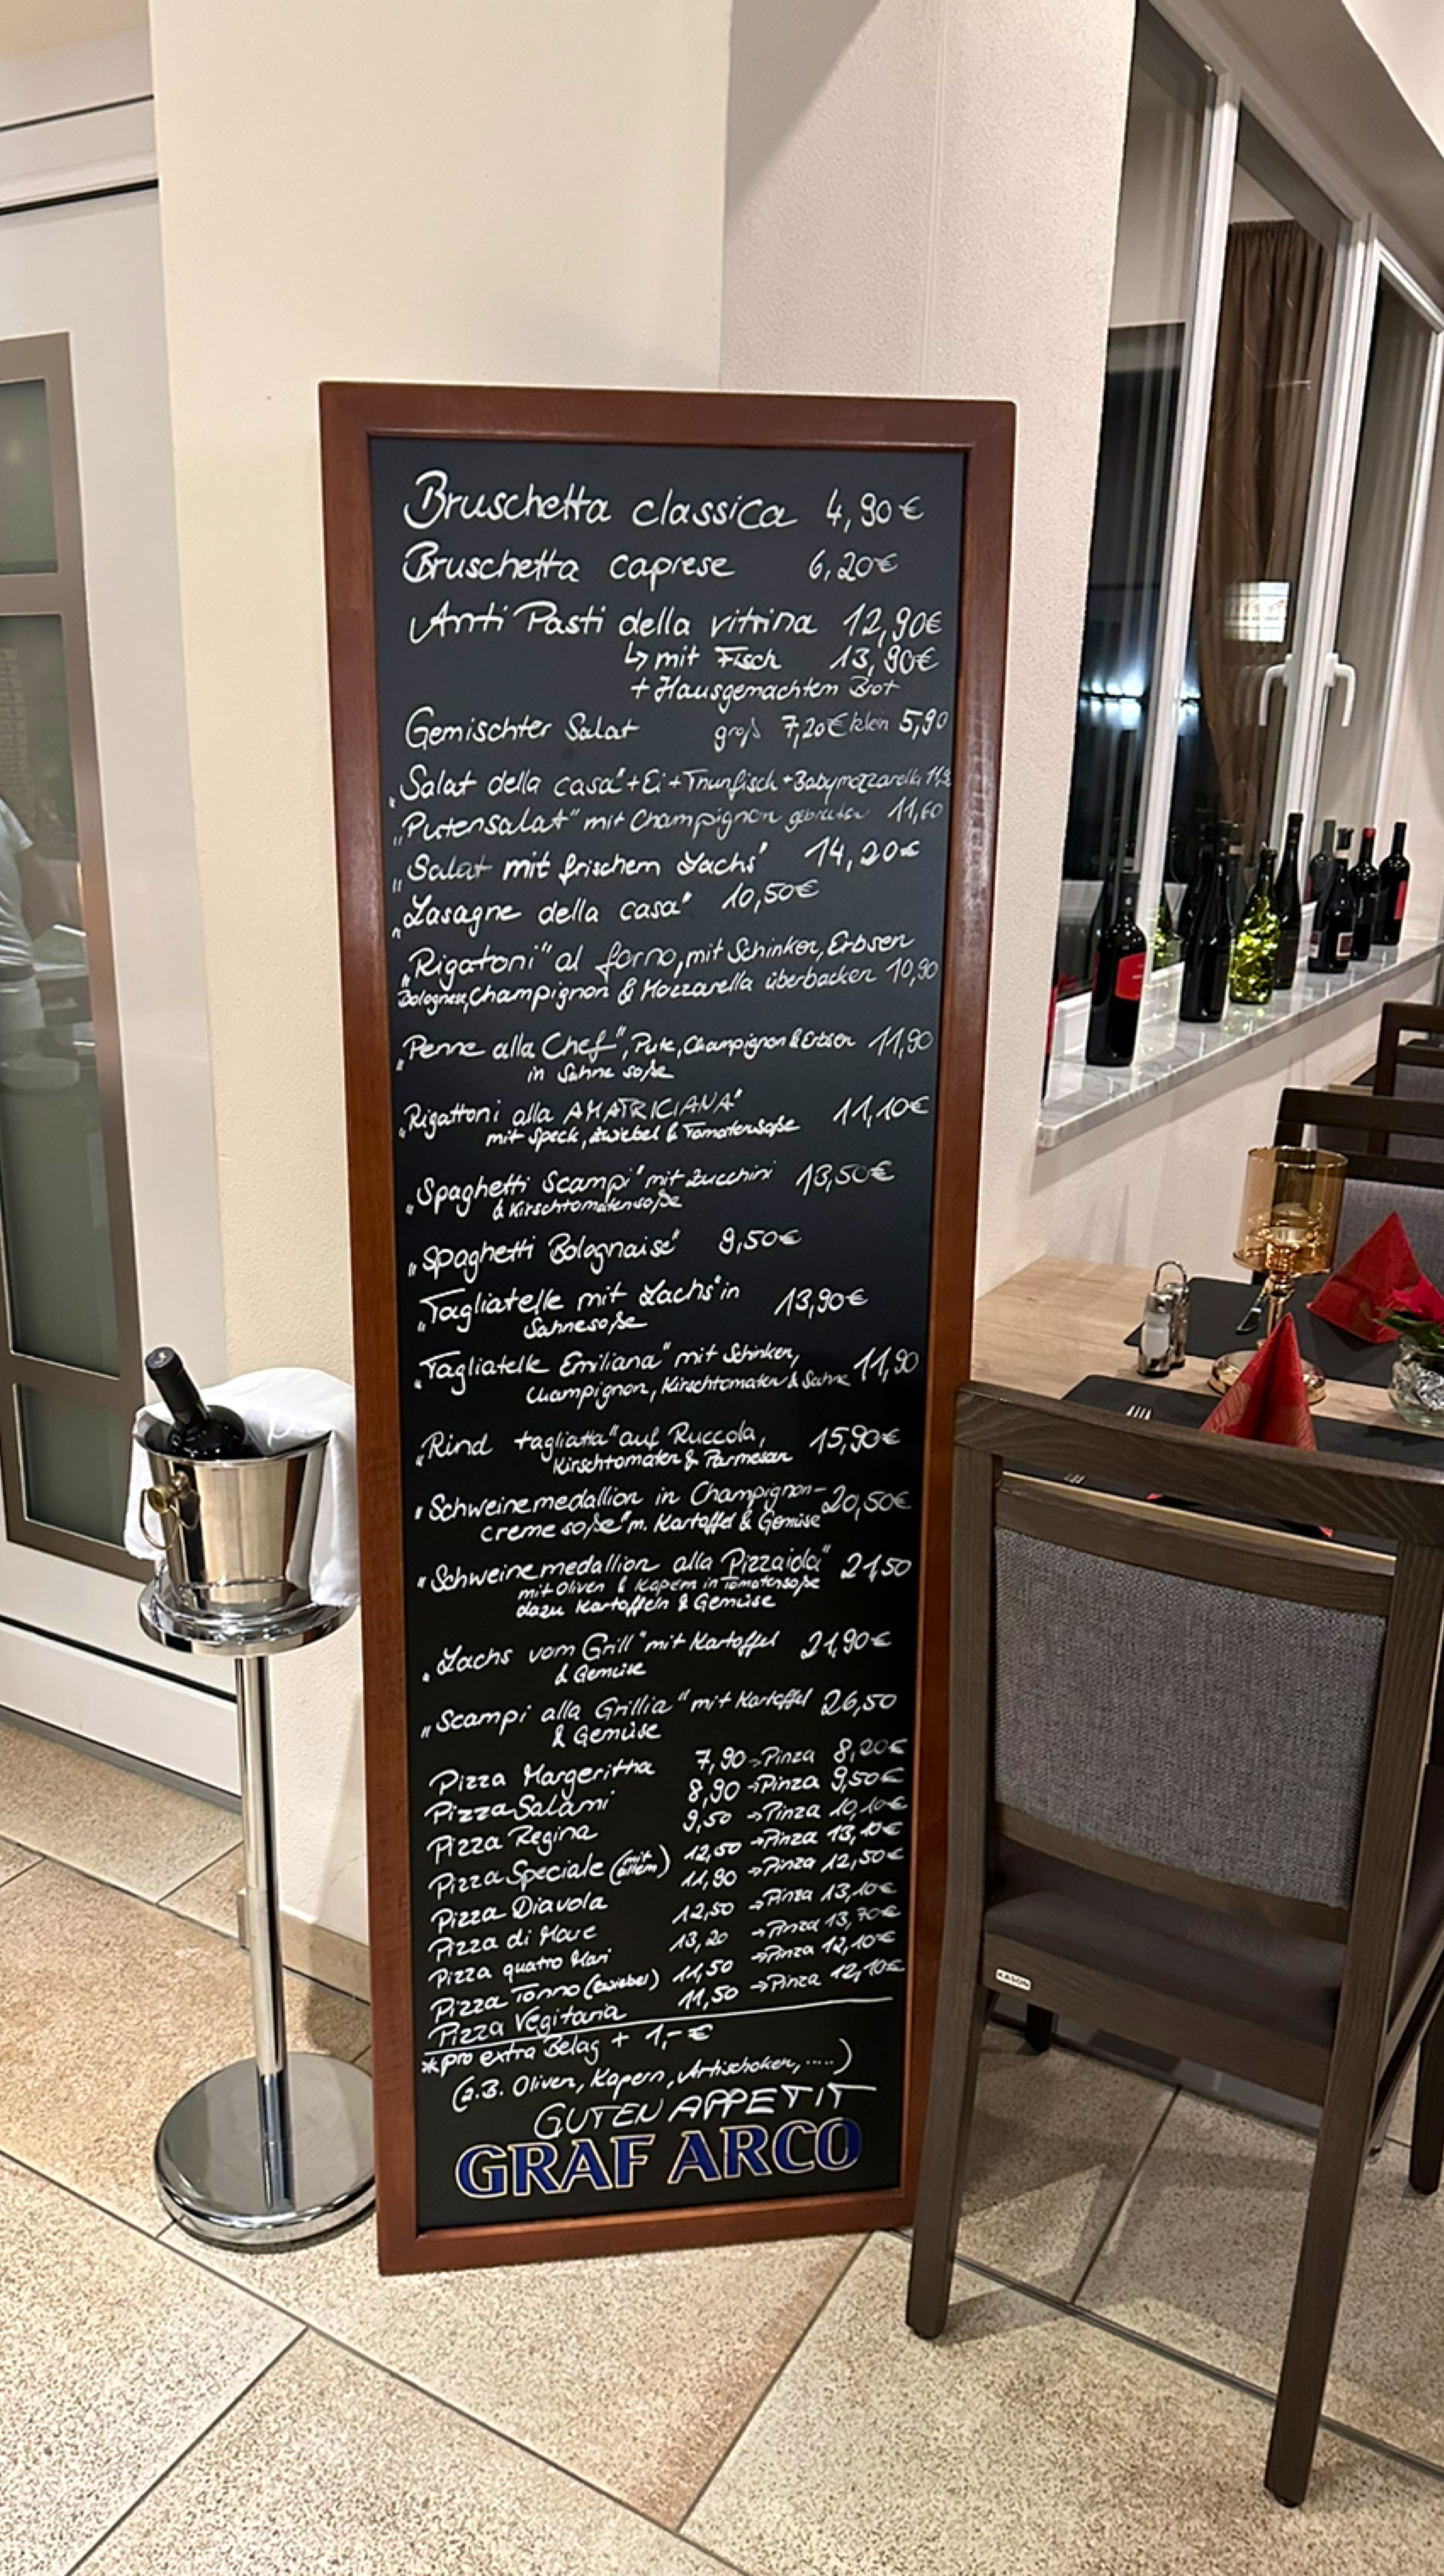 Bruschetta classica 4,90€
Bruschetta caprese 6,20€
Anti Pasti della vitrina 12,90€
↳ mit Fisch 13,90€
+ Hausgemachtem Brot
Gemischter Salat groß 7,20€ klein 5,90
„Salat della casa" + Ei + Thunfisch + Babymozzarella
„Putensalat" mit Champignon gebraten 11,60
„Salat mit frischem Lachs" 14,20€
„Lasagne della casa" 10,50€
„Rigatoni" al forno, mit Schinken, Erbsen
Bolognese, Champignon & Mozzarella überbacken 10,90
„Penne alla Chef", Pute, Champignon & Erbsen 11,90
in Sahne soße
„Rigattoni alla AMATRICIANA" 11,10€
mit Speck, Zwiebel & Tomatensoße
„Spaghetti Scampi" mit Zucchini 13,50€
& Kirschtomatensoße
„Spaghetti Bolognaise" 9,50€
„Tagliatelle mit Lachs" in 13,90€
Sahnesoße
„Tagliatelle Emiliana" mit Schinken, 11,90
Champignon, Kirschtomaten & Sahne
„Rind tagliatta" auf Ruccola, 15,90€
Kirschtomaten & Parmesan
„Schweinemedallion in Champignon- 20,50€
creme soße" m. Kartoffel & Gemüse
„Schweinemedallion alla Pizzaiola" 21,50
mit Oliven & Kapern in Tomatensoße
dazu Kartoffeln & Gemüse
„Lachs vom Grill" mit Kartoffel 21,90€
& Gemüse
„Scampi alla Grillia" mit Kartoffel 26,50
& Gemüse
Pizza Margeritha 7,90 → Pinza 8,20€
Pizza Salami 8,90 → Pinza 9,50€
Pizza Regina 9,50 → Pinza 10,10€
Pizza Speciale (mit allem) 12,50 → Pinza 13,10€
Pizza Diavola 11,90 → Pinza 12,50€
Pizza di Mare 12,50 → Pinza 13,10€
Pizza quatro Mari 13,20 → Pinza 13,70€
Pizza Tonno (Zwiebel) 11,50 → Pinza 12,10€
Pizza Vegitaria 11,50 → Pinza 12,10€
*pro extra Belag + 1,- €
(z.B. Oliven, Kapern, Artischoken, .....)
GUTEN APPETIT
GRAF ARCO
KASON